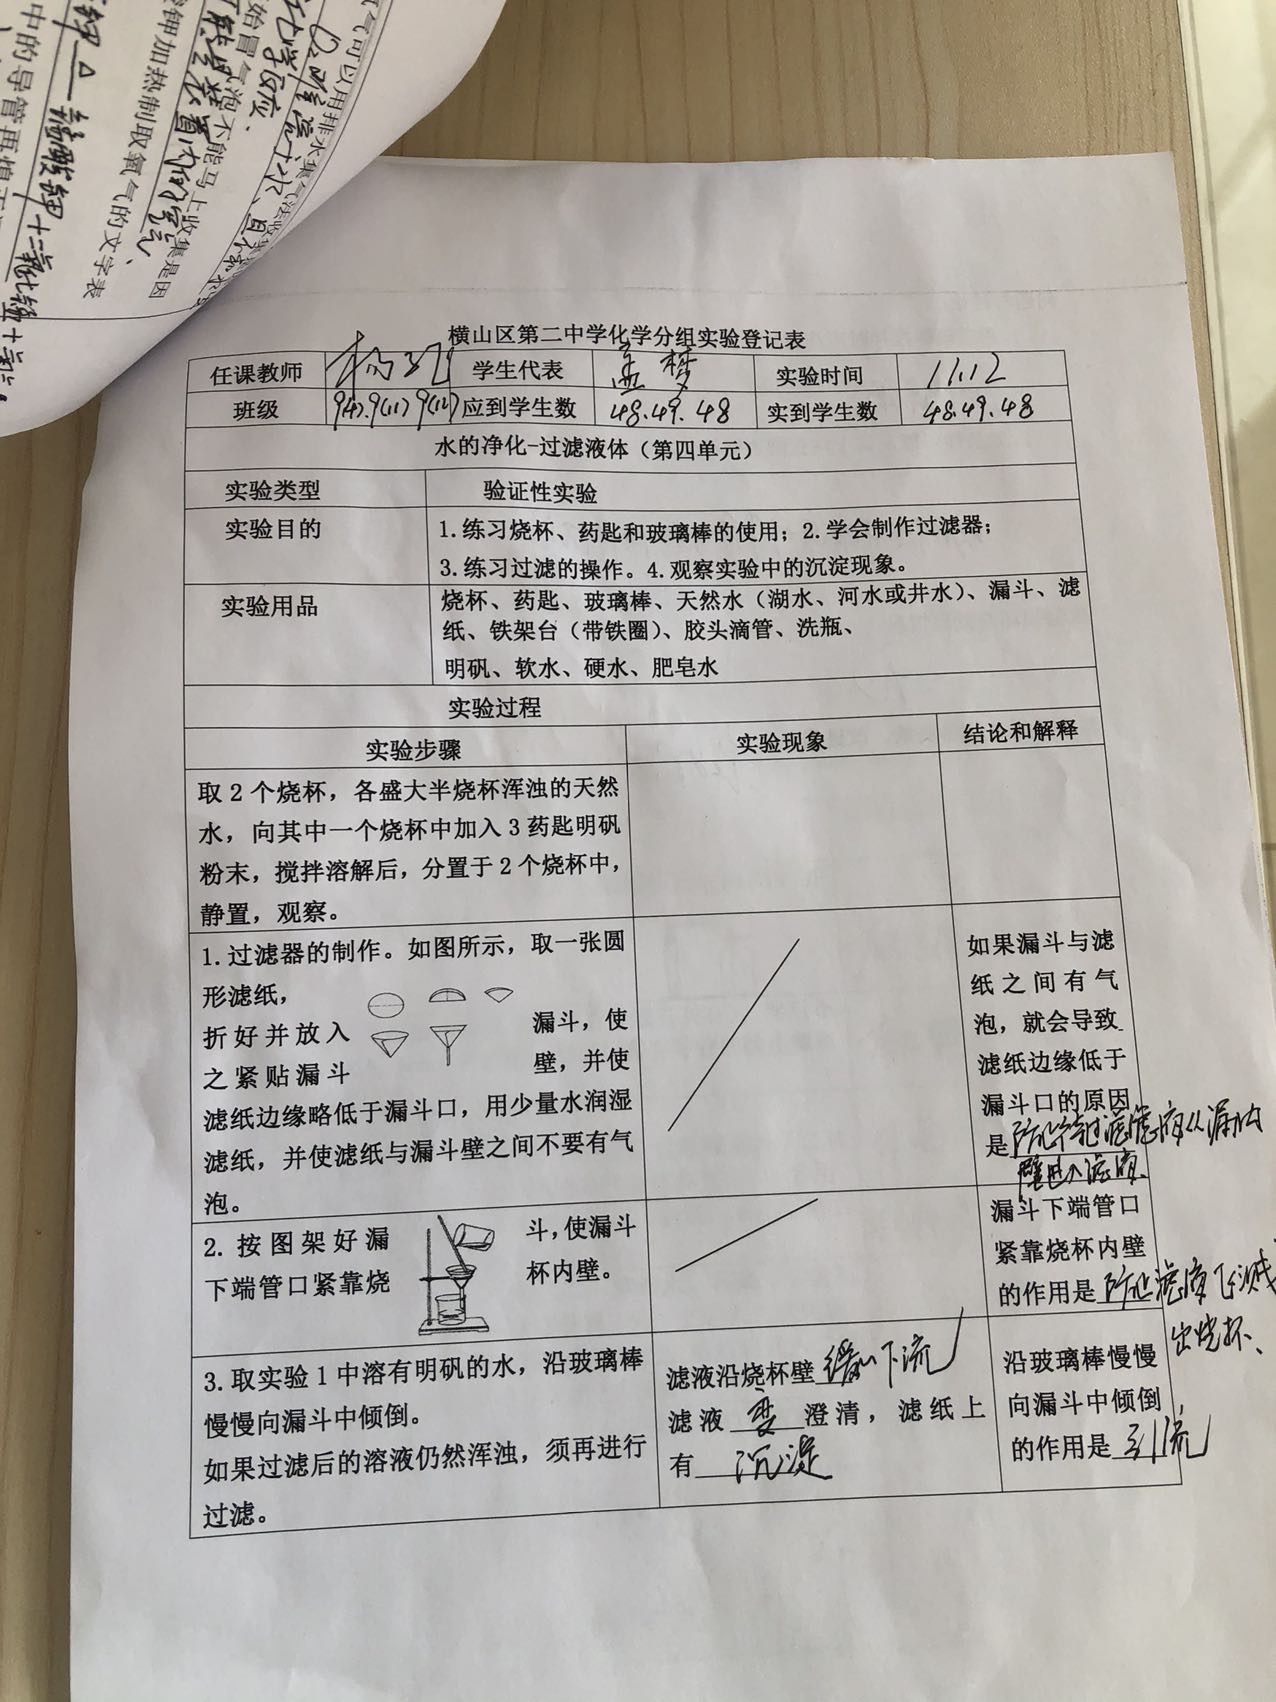 横山区第二中学化学分组实验登记表
任课教师 学生代表 孟梦 实验时间 11.12
班级 9(4).9(11) 9(12) 应到学生数 48.49.48 实到学生数 48.49.48
水的净化-过滤液体（第四单元）
实验类型 验证性实验
实验目的 1.练习烧杯、药匙和玻璃棒的使用；2.学会制作过滤器；
3.练习过滤的操作。4.观察实验中的沉淀现象。
实验用品 烧杯、药匙、玻璃棒、天然水（湖水、河水或井水）、漏斗、滤
纸、铁架台（带铁圈）、胶头滴管、洗瓶、
明矾、软水、硬水、肥皂水
实验过程
实验步骤 实验现象 结论和解释
取2个烧杯，各盛大半烧杯浑浊的天然
水，向其中一个烧杯中加入3药匙明矾
粉末，搅拌溶解后，分置于2个烧杯中，
静置，观察。
1.过滤器的制作。如图所示，取一张圆
形滤纸，
折好并放入 漏斗，使
之紧贴漏斗 壁，并使
滤纸边缘略低于漏斗口，用少量水润湿
滤纸，并使滤纸与漏斗壁之间不要有气
泡。
如果漏斗与滤
纸之间有气
泡，就会导致
滤纸边缘低于
漏斗口的原因
是防止
壁进入滤液.
2.按图架好漏 斗，使漏斗
下端管口紧靠烧 杯内壁。
漏斗下端管口
紧靠烧杯内壁
的作用是防止滤液飞溅
出烧杯、
3.取实验1中溶有明矾的水，沿玻璃棒
慢慢向漏斗中倾倒。
如果过滤后的溶液仍然浑浊，须再进行
过滤。
滤液沿烧杯壁 下流
滤液 变 澄清，滤纸上
有 沉淀
沿玻璃棒慢慢
向漏斗中倾倒，
的作用是 引流